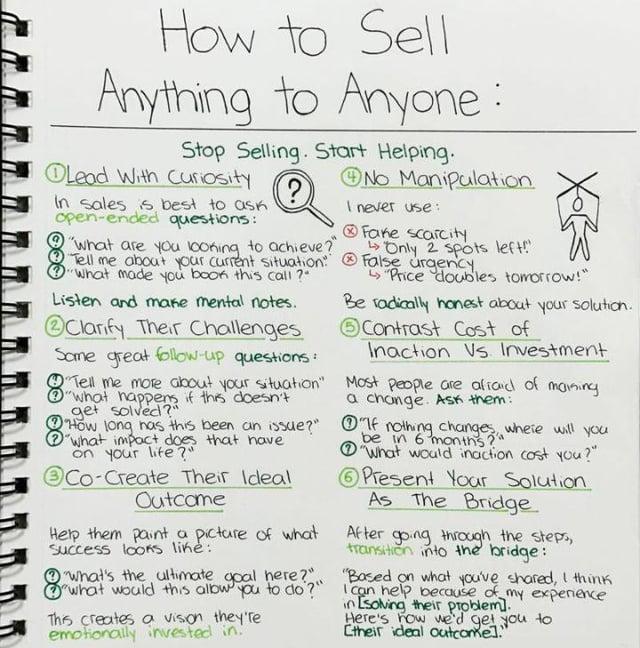 How to Sell
Anything to Anyone:
Stop Selling. Start Helping.
1 Lead With Curiosity
In sales is best to ask
open-ended questions:
? "What are you looking to achieve?"
? "Tell me about your current situation"
? "What made you book this call?"
Listen and make mental notes.
2 Clarify Their Challenges
Some great follow-up questions:
? "Tell me more about your situation"
? "What happens if this doesn't
get solved?"
? "How long has this been an issue?"
? "What impact does that have
on your life?"
3 Co-Create Their Ideal
Outcome
Help them paint a picture of what
success looks like:
? "What's the ultimate goal here?"
? "What would this allow you to do?"
This creates a vision they're
emotionally invested in.
?
4 No Manipulation
I never use:
x Fake scarcity
↳ "Only 2 spots left!"
x False urgency
↳ "Price doubles tomorrow!"
Be radically honest about your solution.
5 Contrast Cost of
Inaction Vs. Investment
Most people are afraid of making
a change. Ask them:
? "If nothing changes, where will you
be in 6 months?"
? "What would inaction cost you?"
6 Present Your Solution
As The Bridge
After going through the steps,
transition into the bridge:
"Based on what you've shared, I think
I can help because of my experience
in [solving their problem].
Here's how we'd get you to
[their ideal outcome]."